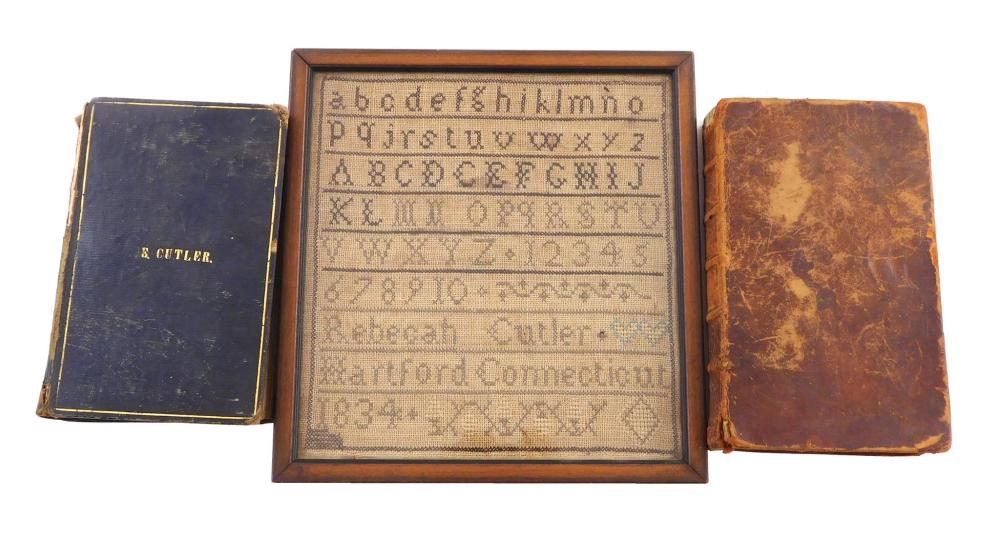 E. CUTLER.
a b c d e f g h i k l m n o
p q j r s t u v w x y z
A B C D E F G H I J
K L M N O P Q R S T U
V W X Y Z · 1 2 3 4 5
6 7 8 9 10
Rebecah Cutler
Hartford Connecticut
1834